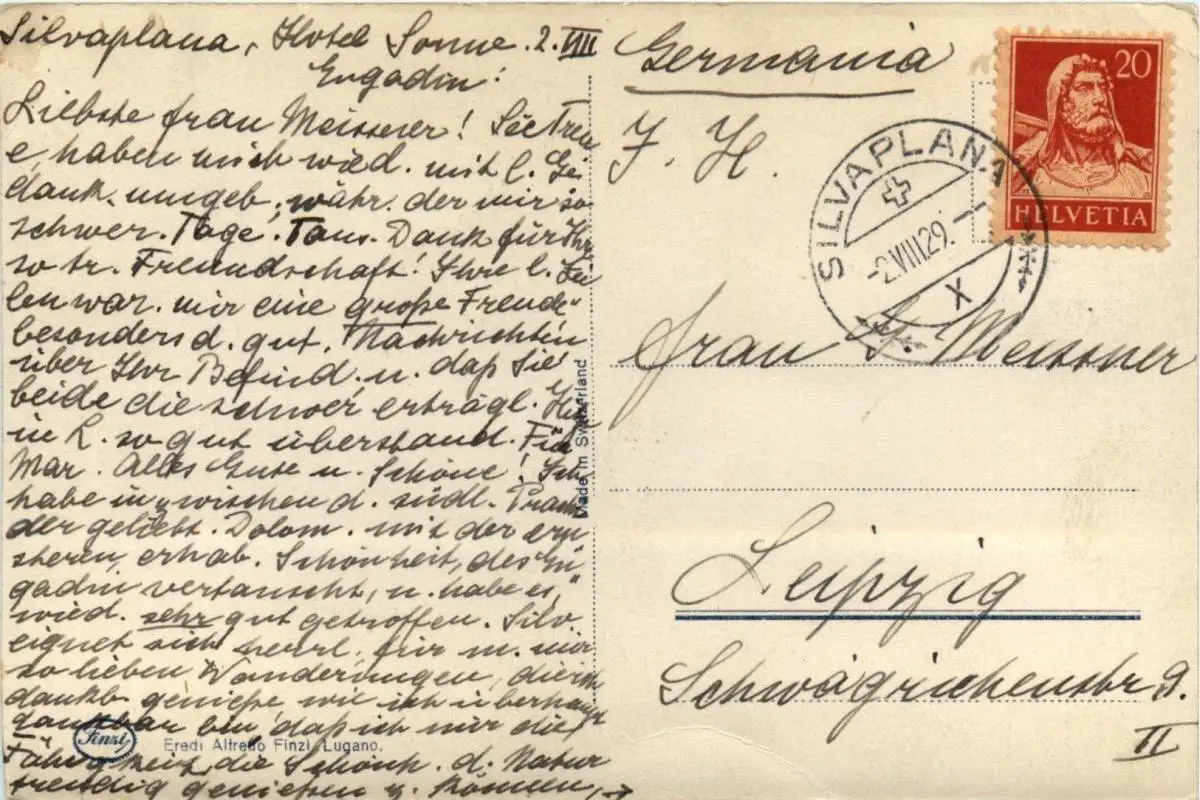 Silvaplana, Hotel Sonne. 2. VIII
Engadin!
Liebste Frau Meissner! Sie Treu
e, haben mich wied. mit l. Ge
dank. umgeb., währ. der mir so
schwer. Tage. Taus. Dank für Ihr
so tr. Freundschaft! Ihre l. Zei
len war. mir eine große Freude
besonders d. gut. Nachrichten
über Ihr Befind. u. daß Sie
beide die schwer erträgl.
in L. so gut überstand. Für
Mar. Alles Gute u. Schöne! Ich
habe inzwischen d. südl. Pracht
der geliebt. Dolom. mit der ern
steren, erhab. Schönheit, des En
gadin vertauscht, u. habe es,
wied. sehr gut getroffen. Silv.
eignet sich herrl. für m. mir
so lieben Wanderungen, die ich
dankb. genieße wie ich überhaupt
dankbar bin daß ich mir die
Fähigkeit, die Schönh. d. Natur
freudig genießen z. können, →
Made in Switzerland
Finzi
Eredi Alfredo Finzi, Lugano.
Germania
J. H.
20
HELVETIA
SILVAPLANA
-2.VIII.29.-
X
Frau J. Meissner
Leipzig
Schwägrichenstr 9.
II